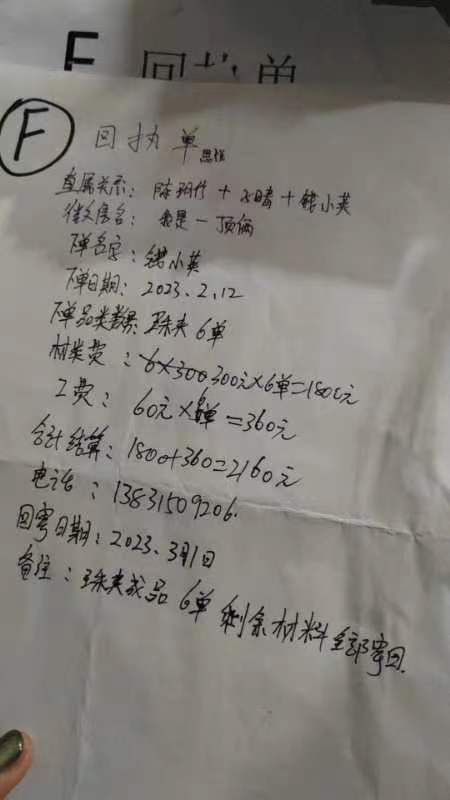 F 回执单
F 回执单
直属关系: 陈羽竹 + 水晴 + 钱小英
微信名: 我是一顶俩
下单名字: 钱小英
下单日期: 2023.2.12
下单品类数量: 珠夹 6单
材料费: 300元×6单=1800元
工费: 60元×6单=360元
合计结算: 1800+360=2160元
电话: 13831509206.
回寄日期: 2023.3月1日
备注: 珠夹成品 6单 剩余材料全部寄回.